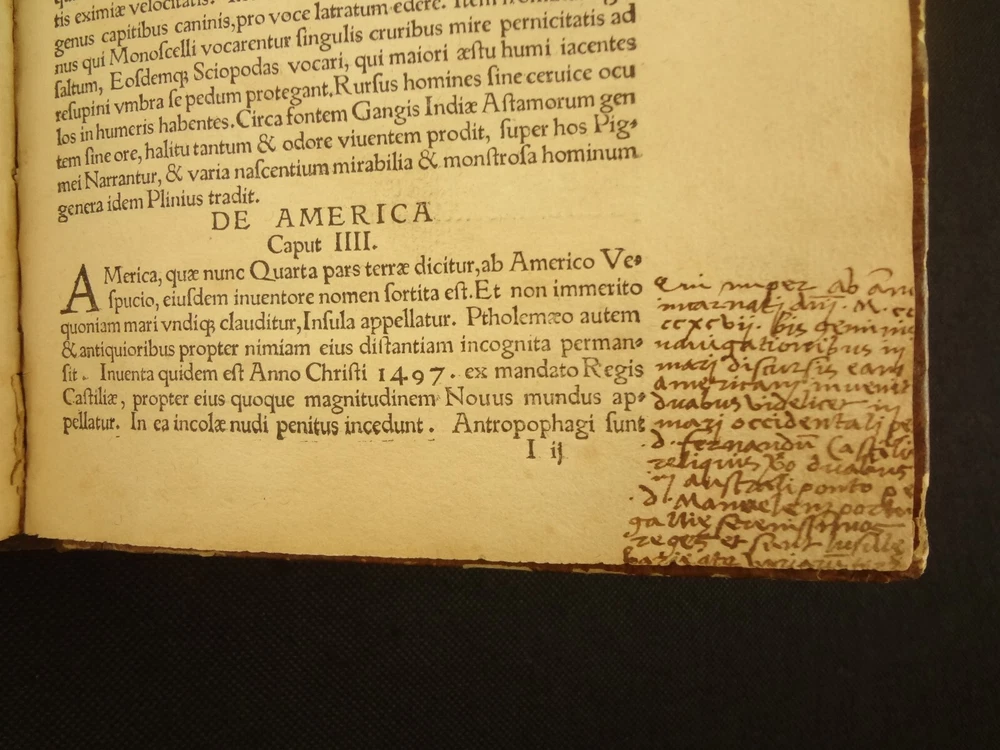 tis eximiæ velocitatis.
genus capitibus caninis, pro voce latratum edere. Item
nus qui Monoſcelli vocarentur ſingulis cruribus mire pernicitatis ad
ſaltum, Eoſdemqꝫ Sciopodas vocari, qui maiori æſtu humi iacentes
reſupini vmbra ſe pedum protegant. Rurſus homines ſine ceruice ocu
los in humeris habentes. Circa fontem Gangis Indiæ Aſtamorum gen
tem ſine ore, halitu tantum & odore viuentem prodit, ſuper hos Pig⸗
mei Narrantur, & varia naſcentium mirabilia & monſtroſa hominum
genera idem Plinius tradit.
DE AMERICA
Caput IIII.
AMerica, quæ nunc Quarta pars terræ dicitur, ab Americo Ve⸗
ſpucio, eiuſdem inuentore nomen ſortita eſt. Et non immerito
quoniam mari vndiqꝫ clauditur, Inſula appellatur. Ptholemæo autem
& antiquioribus propter nimiam eius diſtantiam incognita perman⸗
ſit. Inuenta quidem eſt Anno Chriſti 1497. ex mandato Regis
Caſtiliæ, propter eius quoque magnitudinem Nouus mundus ap⸗
pellatur. In ea incolæ nudi penitus incedunt. Antropophagi ſunt
I ij
Qui nuper ab
incarnati dni. M. cc
ccxcvij. bis geminis
nauigationibus in
mari discursis eam
americam inuenit
duabus videlicet in
mari occidentali pe
d. fernandū Castilie
reliquis vo duabus
in australi ponto pe
d. Manuelem portu
gallie serenissimos
reges et sunt